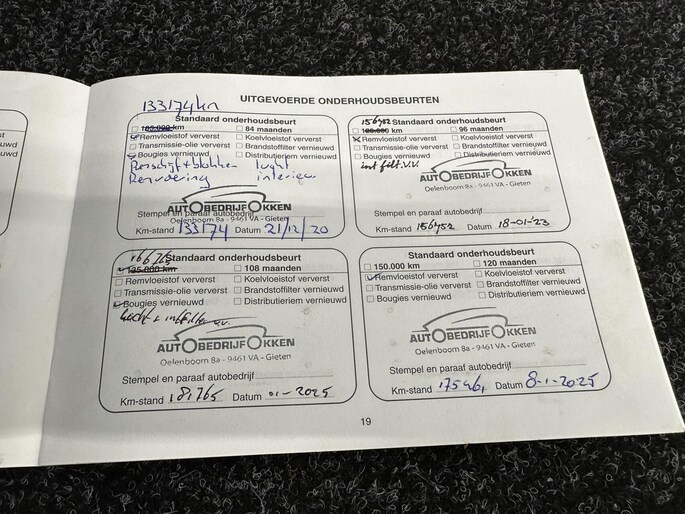 UITGEVOERDE ONDERHOUDSBEURTEN
133174km
Standaard onderhoudsbeurt
105.000 km 84 maanden
Remvloeistof ververst Koelvloeistof ververst
Transmissie-olie ververst Brandstoffilter vernieuwd
Bougies vernieuwd Distributieriem vernieuwd
Remschijf + blokken lucht
Remvoering interieur
AUTOBEDRIJF OKKEN
Oelenboom 8a - 9461 VA - Gieten
Stempel en paraaf autobedrijf
Km-stand 133174 Datum 21/12/20
156452
Standaard onderhoudsbeurt
96 maanden
Remvloeistof ververst Koelvloeistof ververst
Transmissie-olie ververst Brandstoffilter vernieuwd
Bougies vernieuwd Distributieriem vernieuwd
int filt. v.v.
AUTOBEDRIJF OKKEN
Oelenboom 8a - 9461 VA - Gieten
Stempel en paraaf autobedrijf
Km-stand 156452 Datum 18-01-'23
Standaard onderhoudsbeurt
135.000 km 108 maanden
Remvloeistof ververst Koelvloeistof ververst
Transmissie-olie ververst Brandstoffilter vernieuwd
Bougies vernieuwd Distributieriem vernieuwd
lucht + int filter v.v.
AUTOBEDRIJF OKKEN
Oelenboom 8a - 9461 VA - Gieten
Stempel en paraaf autobedrijf
Km-stand 181765 Datum -01-2025
Standaard onderhoudsbeurt
150.000 km 120 maanden
Remvloeistof ververst Koelvloeistof ververst
Transmissie-olie ververst Brandstoffilter vernieuwd
Bougies vernieuwd Distributieriem vernieuwd
AUTOBEDRIJF OKKEN
Oelenboom 8a - 9461 VA - Gieten
Stempel en paraaf autobedrijf
Km-stand Datum 8-1-2025
19